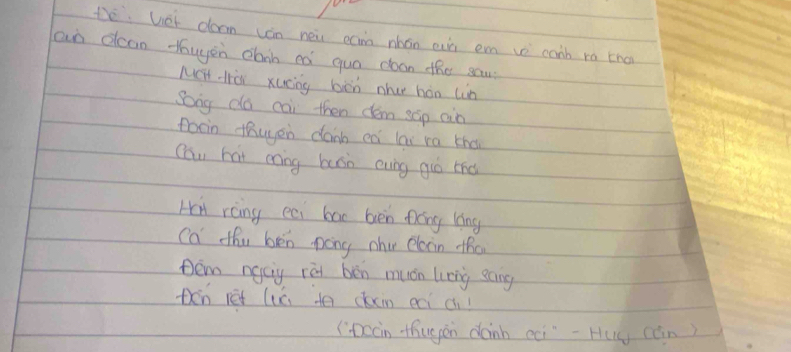 Đề: Viết đoạn văn nêu cảm nhận của em về cảnh ra khơi
của đoàn thuyền đánh cá qua đoạn thơ sau:
Mặt trời xuống biển như hòn lửa
Sóng đã cài then đêm sập cửa
Đoàn thuyền đánh cá lại ra khơi
Câu hát căng buồm cùng gió khơi
Hát rằng cá bạc biển Đông lặng
Cá thu biển Đông như đoàn thoi
Đêm ngày dệt biển muôn luồng sáng
Đến dệt lưới ta đoàn cá ơi!
("Đoàn thuyền đánh cá" - Huy Cận)